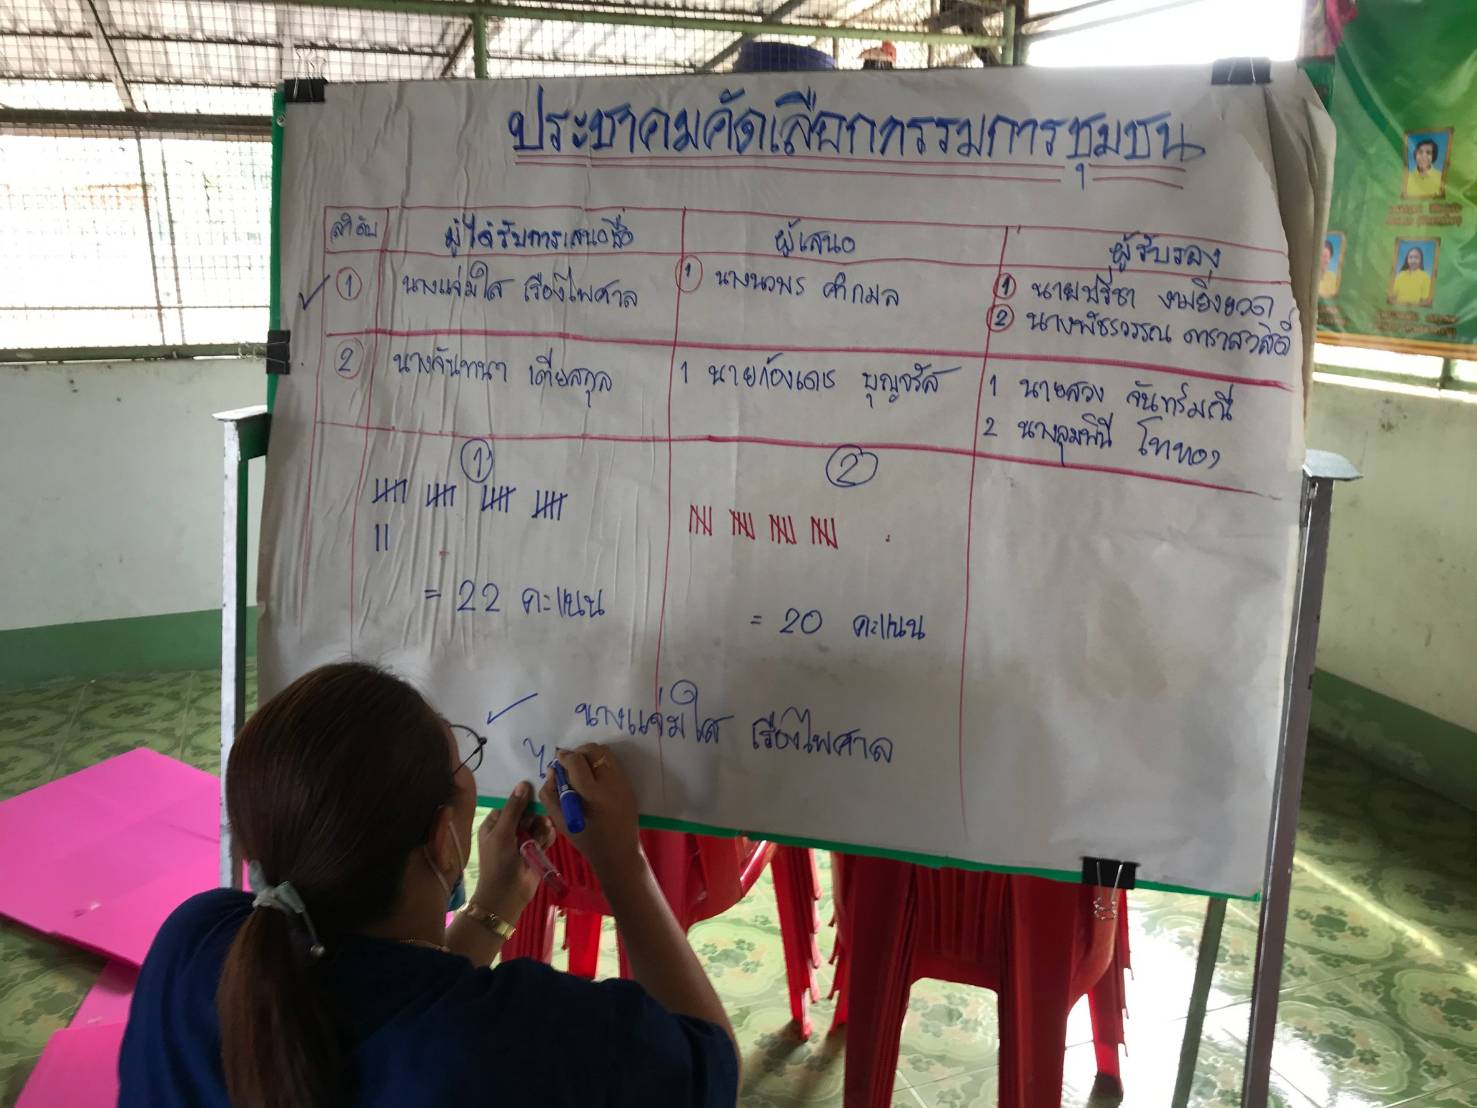 ประชาคมคัดเลือกกรรมการชุมชน
ลำดับ ผู้ได้รับการเสนอชื่อ ผู้เสนอ ผู้รับรอง
1 นางแจ่มใส เรืองไพศาล 1 นางนวพร คำกมล 1 นายปรีชา งามยิ่งยวด
2 นางพัชรวรรณ ดาราสวัสดิ์
2 นางจันทนา เตียสกุล 1 นายก้องเดช บุญจรัส 1 นายสวง จันทร์มณี
2 นางลุมพินี โททอง
1 2
= 22 คะแนน = 20 คะแนน
นางแจ่มใส เรืองไพศาล